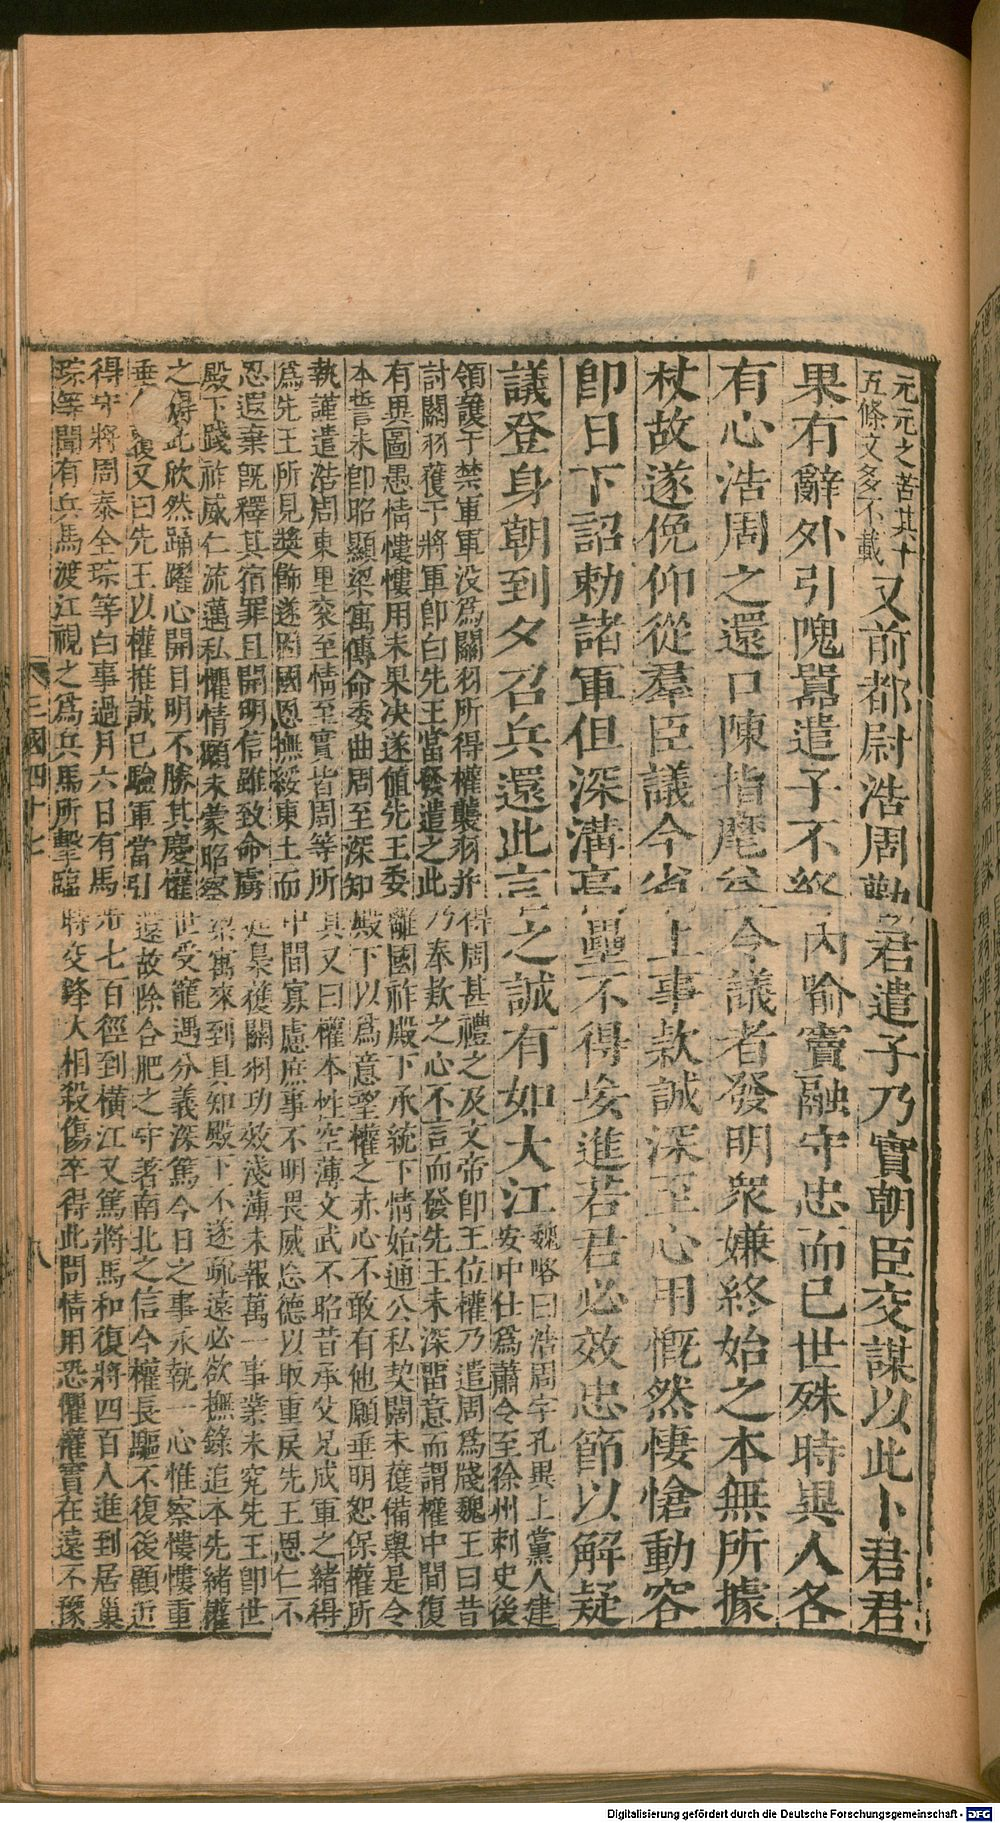 元元之苦其十
五條文多不載
又前都尉浩周勸君遣子乃實朝臣交謀以此卜君君
果有辭外引隗囂遣子不終內喻竇融守忠而已世殊時異人各
有心浩周之還口陳指麾益今議者發明衆嫌終始之本無所據
杖故遂俛仰從羣臣議今省上事款誠深至心用慨然悽愴動容
卽日下詔勅諸軍但深溝高壘不得妄進若君必效忠節以解疑
議登身朝到夕召兵還此言之誠有如大江
魏略曰浩周字孔異上黨人建
安中仕爲蕭令至徐州刺史後
領護于禁軍軍没爲關羽所得權襲羽并得周甚禮之及文帝卽王位權乃遣周爲牋魏王曰昔
討關羽獲于將軍卽白先王當發遣之此乃奉款之心不言而發先王未深留意而謂權中間復
有異圖愚情慺慺用未果决遂值先王委離國祚殿下承統下情始通公私契闊未獲備舉是令
本誓未卽昭顯梁寓傳命委曲周至深知殿下以爲意望權之赤心不敢有他願垂明恕保權所
執謹遣浩周東里衮至情至實皆周等所具又曰權本性空薄文武不昭昔承父兄成軍之緒得
爲先王所見奬飾遂因國恩撫綏東土而中間寡慮庶事不明畏威忘德以取重戾先王恩仁不
忍遐棄旣釋其宿罪且開明信雖致命虜廷梟獲關羽功效淺薄未報萬一事業未究先王卽世
殿下踐祚威仁流邁私懼情願未蒙昭察梁寓來到具知殿下不遂疎遠必欲撫錄追本先緒權
之得此欣然踊躍心開目明不勝其慶權世受寵遇分義深篤今日之事永執一心惟察慺慺重
垂含覆又曰先王以權推誠已驗軍當引還故除合肥之守著南北之信令權長驅不復後顧近
得守將周泰全琮等白事過月六日有馬步七百徑到橫江又篤將馬和復將四百人進到居巢
琮等聞有兵馬渡江視之爲兵馬所擊臨時交鋒大相殺傷卒得此問情用恐懼權實在遠不豫
三國四十七
八
Digitalisierung gefördert durch die Deutsche Forschungsgemeinschaft - DFG